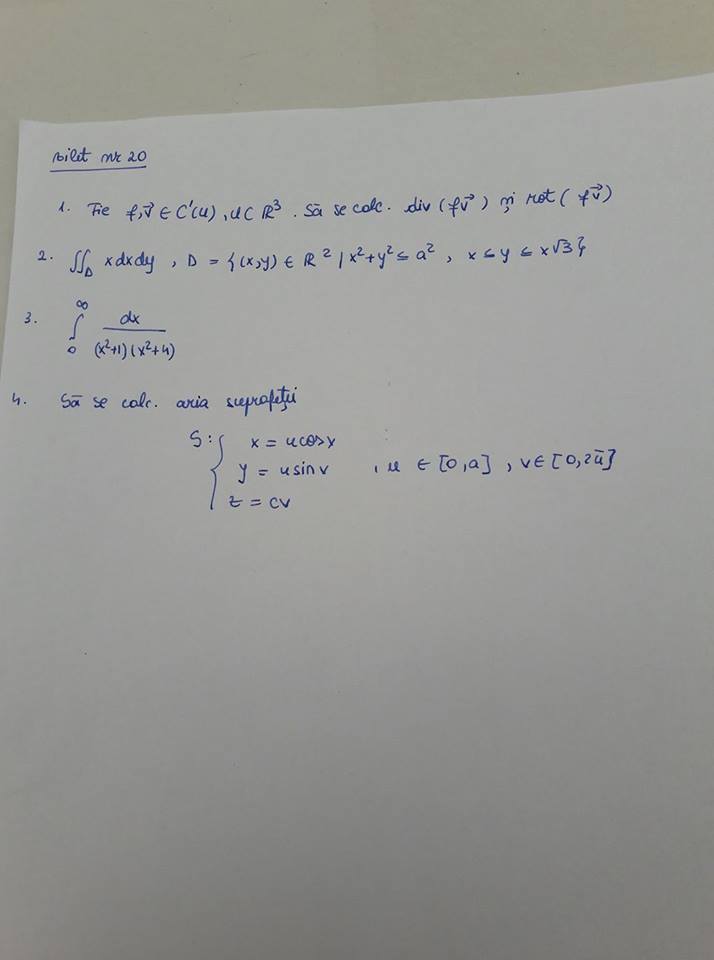 Bilet nr 20
1. Fie f, v⃗ ∈ C'(u), u ⊂ ℝ³. Să se calc. div (f v⃗) și rot (f v⃗)
2. ∬_D x dx dy, D = {(x,y) ∈ ℝ² | x²+y² ≤ a², x ≤ y ≤ x√3}
3. ∫₀^∞ dx / (x²+1)(x²+4)
4. Să se calc. aria suprafeții
S: { x = u cos x
y = u sin v , u ∈ [0, a], v ∈ [0, 2π]
z = cv